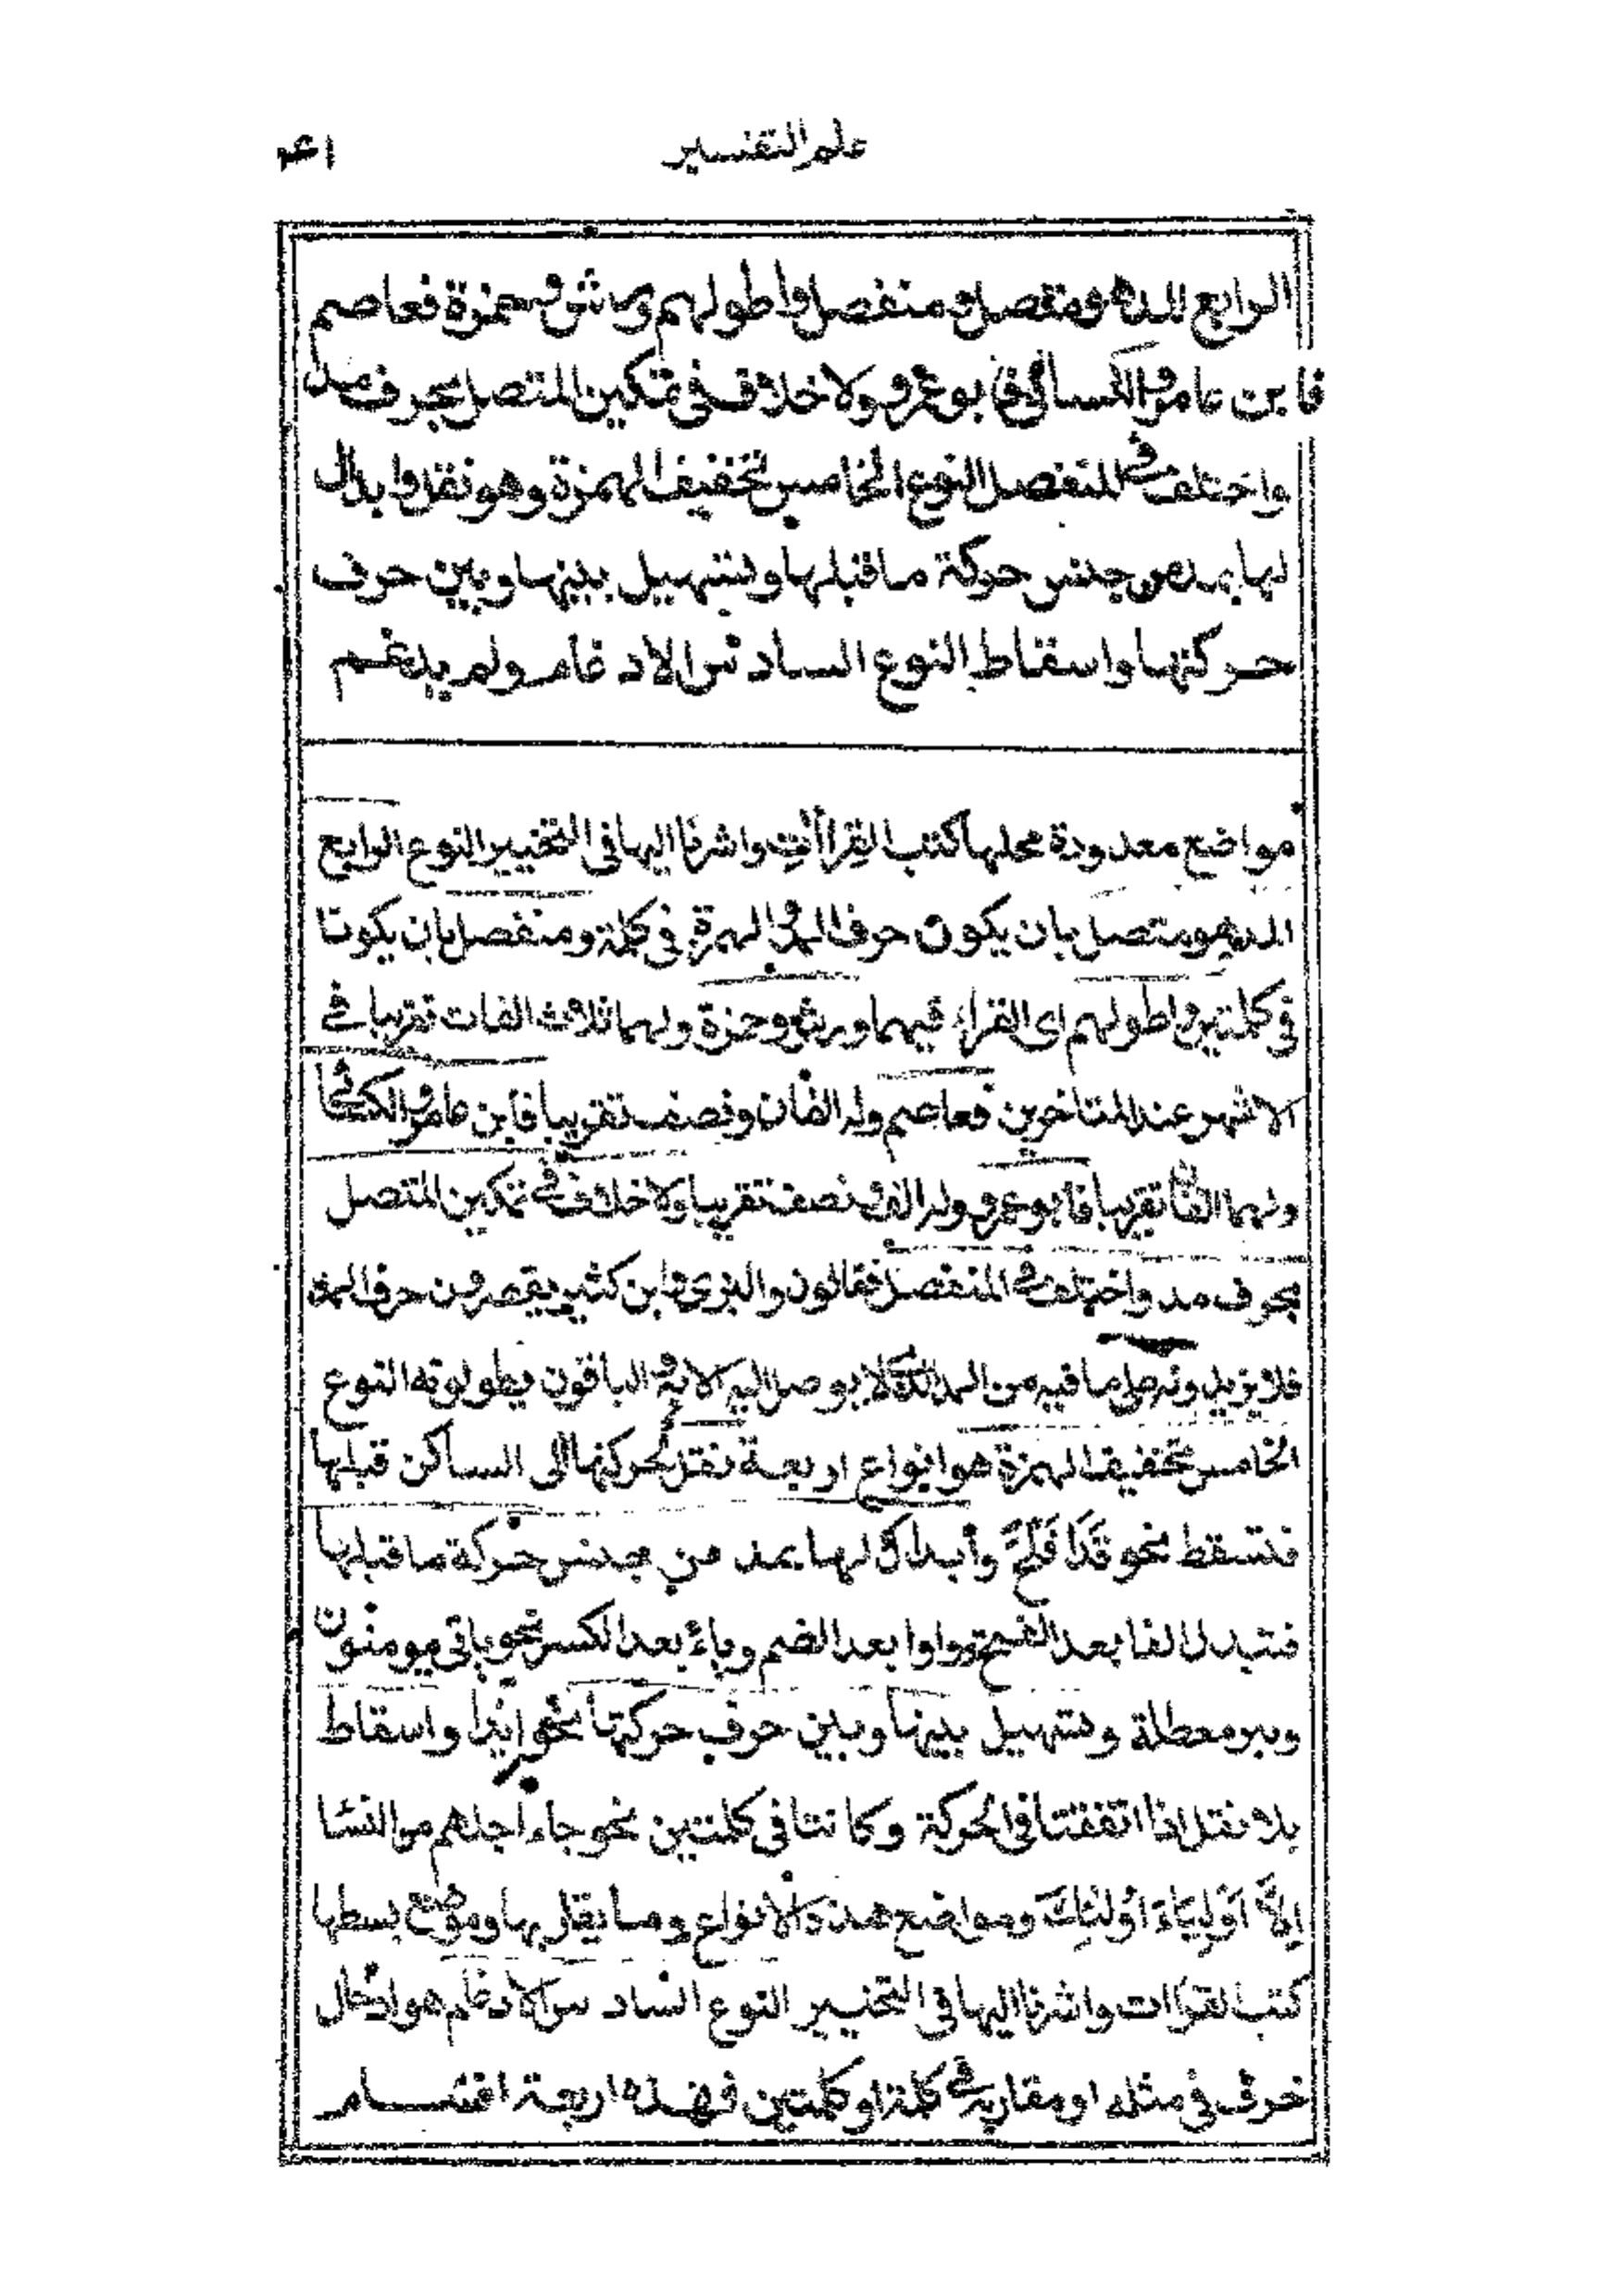 علم التفسير
الرابع المد هو متصل ومنفصل واطولهم ورش وحمزة فعاصم
فابن عامر والكسائي فابو عمرو ولا خلاف في تمكين المتصل بحرف مد
واختلف في المنفصل النوع الخامس تخفيف الهمزة وهو نقل وابدال
لها بمد من جنس حركة ما قبلها وتسهيل بينها وبين حرف
حركتها واسقاط النوع السادس الادغام ولم يدغم
مواضع معدودة محلها كتب القراأت واشرنا اليها في التحبير النوع الرابع
المد هو متصل بان يكون حرف المد والهمزة في كلمة ومنفصل بان يكونا
في كلمتين واطولهم اى القراء فيهما ورش وحمزة ولهما ثلاث الفات تقريبا في
الاشهر عند المتاخرين فعاصم وله الفان ونصف تقريبا فابن عامر والكسائي
ولهما الفان تقريبا فابو عمرو وله الف ونصف تقريبا ولا خلاف في تمكين المتصل
بحرف مد واختلف في المنفصل فقالون والبزى وابن كثير يقصرون حرف المد
فلا يزيدونه على ما فيه من المد الذى لا يوصل اليه الا به والباقون يطولونه النوع
الخامس تخفيف الهمزة هو انواع اربعة نقل لحركتها الى الساكن قبلها
فتسقط نحو قَدَ اَفْلَحَ وأبدال لها بمد من جنس حركة ما قبلها
فتبدل الفا بعد الفتح وواوا بعد الضم وياء بعد الكسر نحو ياتى يومنون
وبير معطلة وتسهيل بينها وبين حرف حركتها نحو ائذا واسقاط
بلا نقل اذا اتفقتا في الحركة وكانتا في كلمتين نحو جاء اجلهم من النسا
اِلاَّ اَوْلِيَاءَ اُولٰئِكَ ومواضع هذه الانواع وما يقاربها وموضع بسطها
كتب القراات واشرنا اليها في التحبير النوع السادس الادغام هو ادخال
حرف في مثله او مقاربه في كلمة او كلمتين فهذه اربعة اقسام